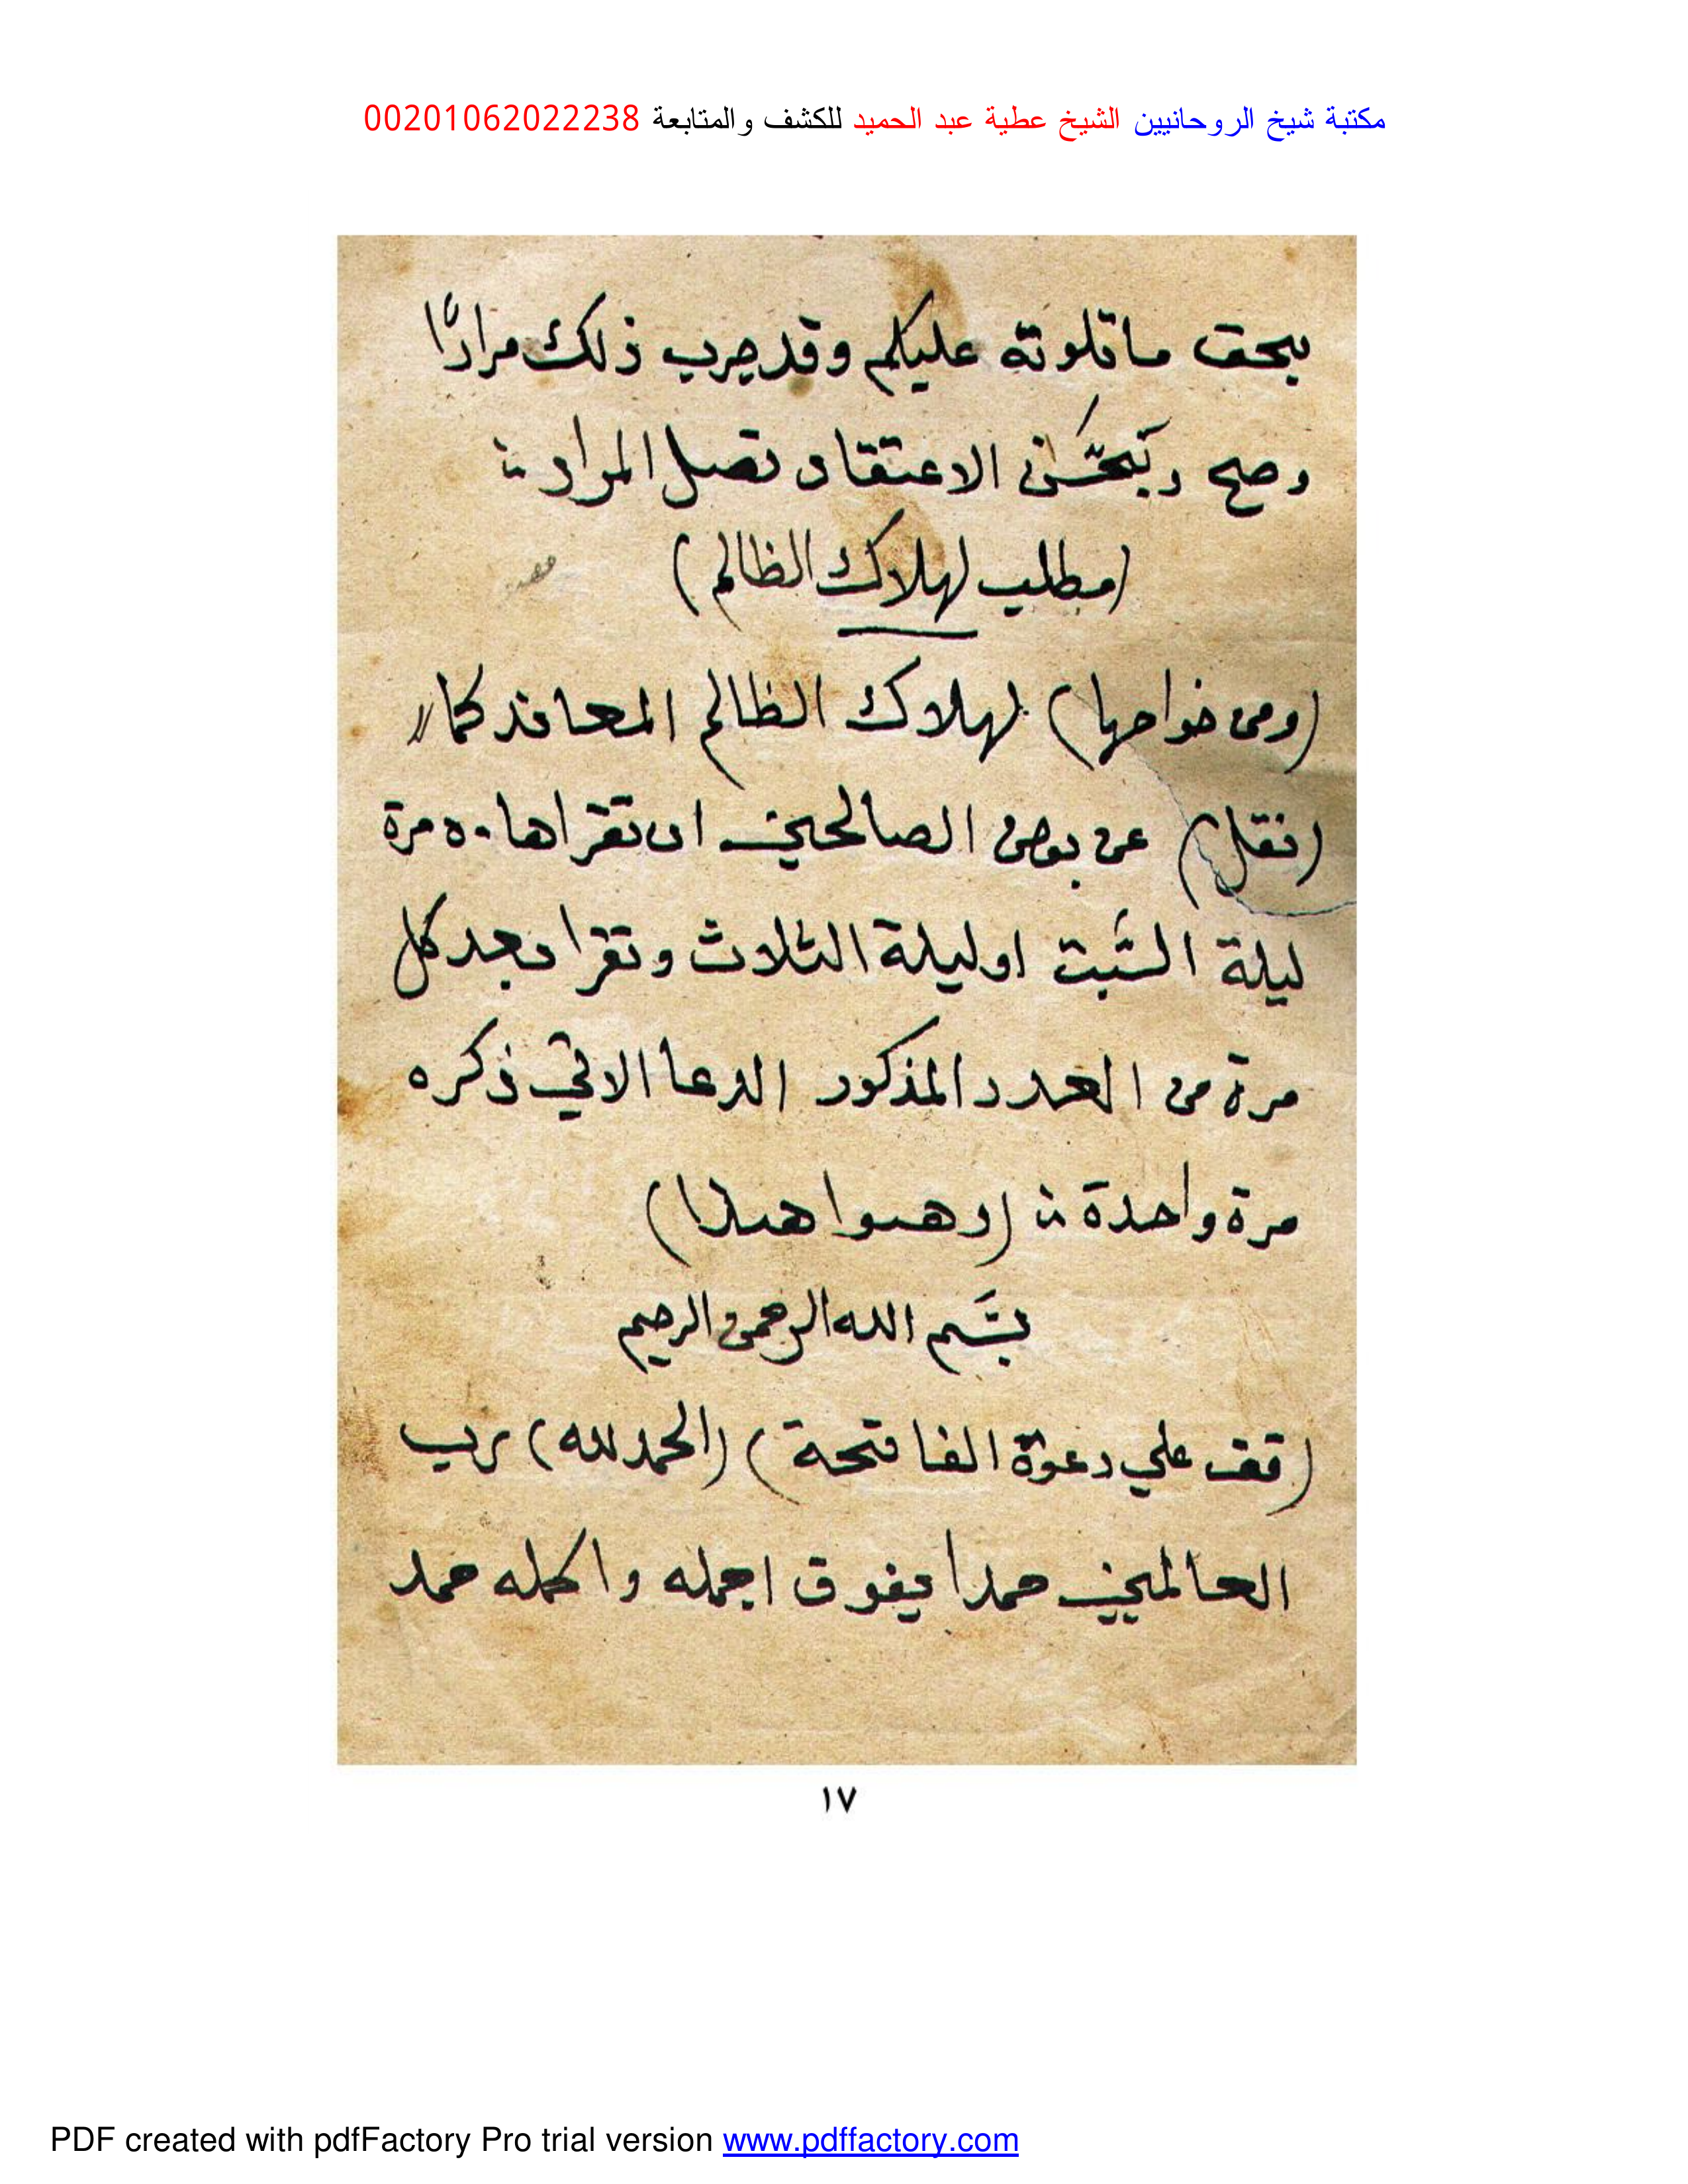 مكتبة شيخ الروحانيين الشيخ عطية عبد الحميد للكشف والمتابعة 00201062022238
بحق ما تلوته عليكم وقد جرب ذلك مرارًا
وصح وبحَسْن الاعتقاد تصل المراد
(مطلب لهلاك الظالم)
(ومن خواصها) لهلاك الظالم المعاند كما
(نقل) عن بعض الصالحين ان تقراها ٥٠ مرة
ليلة السَّبت او ليلة الثلاث وتقرا بعد كل
مرة من العدد المذكور الدعا الاتي ذكره
مرة واحدة (وهوا هذا)
بسَم الله الرحمن الرحيم
(قف علي دعوة الفاتحة) (الحمد لله) رب
العالمين حمدا يفوق اجمله واكمله حمد
١٧
PDF created with pdfFactory Pro trial version www.pdffactory.com